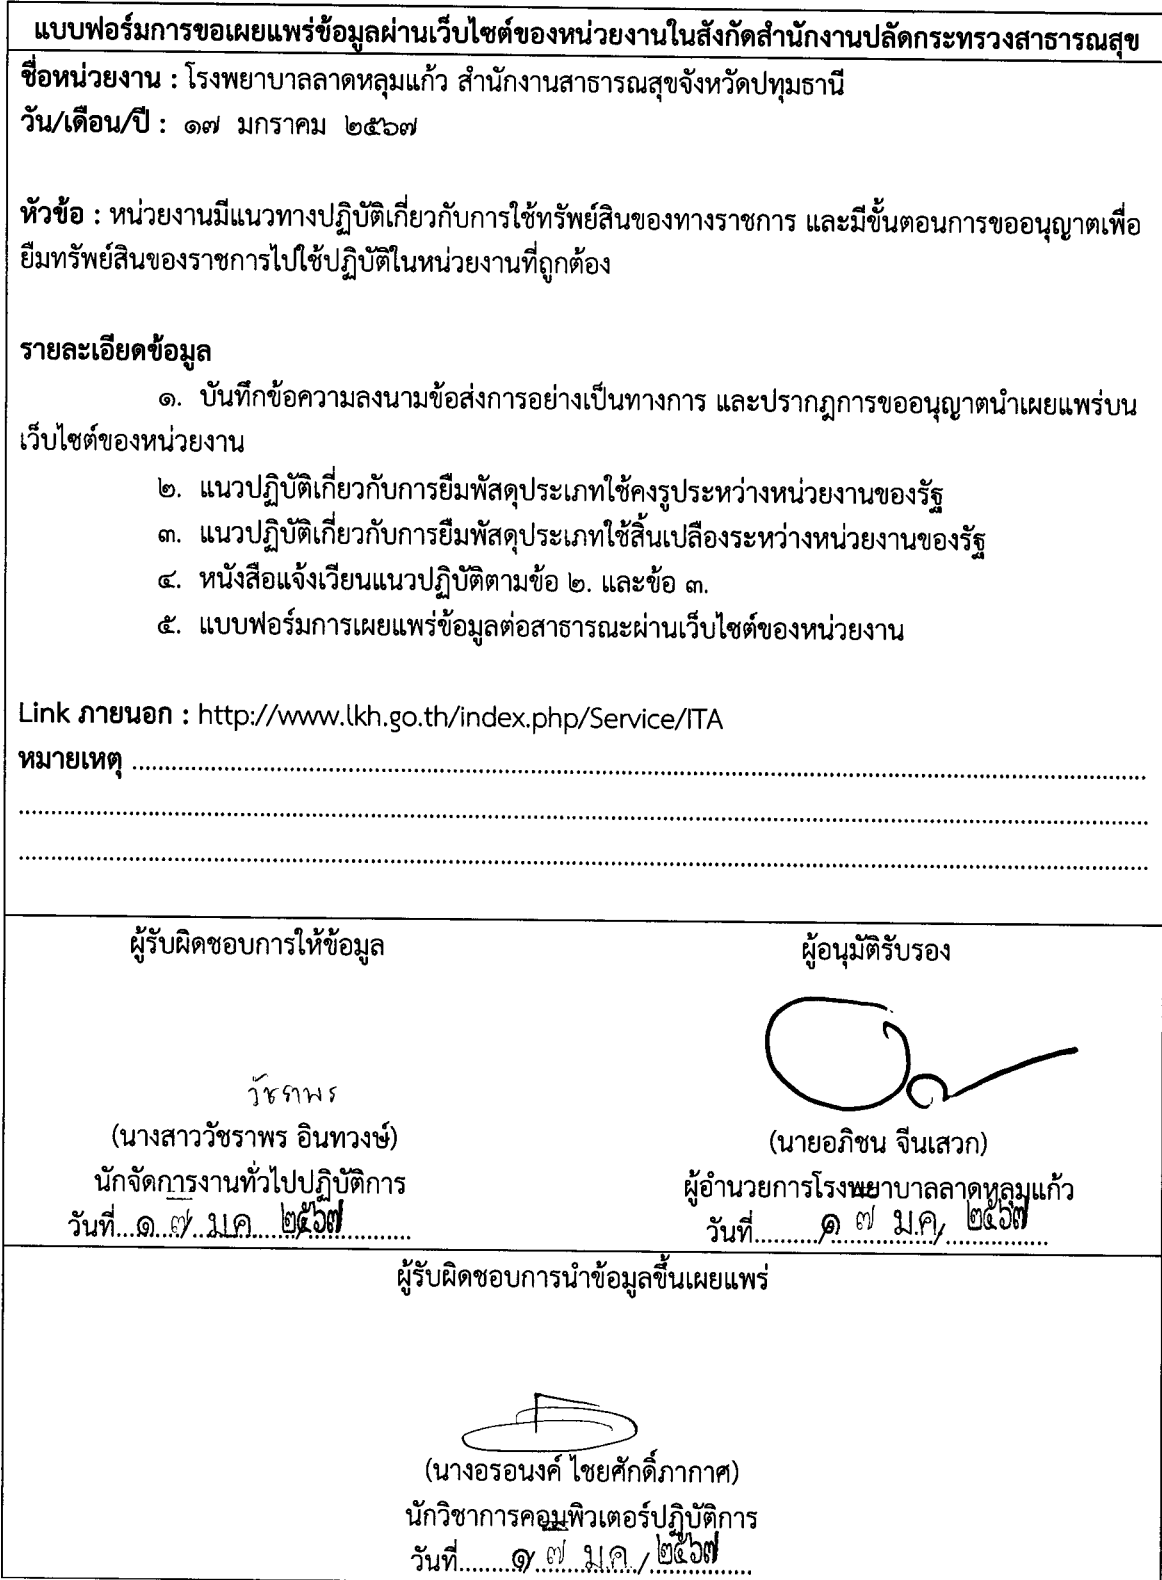 แบบฟอร์มการขอเผยแพร่ข้อมูลผ่านเว็บไซต์ของหน่วยงานในสังกัดสำนักงานปลัดกระทรวงสาธารณสุข
ชื่อหน่วยงาน : โรงพยาบาลลาดหลุมแก้ว สำนักงานสาธารณสุขจังหวัดปทุมธานี
วัน/เดือน/ปี : ๑๗ มกราคม ๒๕๖๗
หัวข้อ : หน่วยงานมีแนวทางปฏิบัติเกี่ยวกับการใช้ทรัพย์สินของทางราชการ และมีขั้นตอนการขออนุญาตเพื่อ
ยืมทรัพย์สินของราชการไปใช้ปฏิบัติในหน่วยงานที่ถูกต้อง
รายละเอียดข้อมูล
๑. บันทึกข้อความลงนามข้อส่งการอย่างเป็นทางการ และปรากฎการขออนุญาตนำเผยแพร่บน
เว็บไซต์ของหน่วยงาน
๒. แนวปฏิบัติเกี่ยวกับการยืมพัสดุประเภทใช้คงรูประหว่างหน่วยงานของรัฐ
๓. แนวปฏิบัติเกี่ยวกับการยืมพัสดุประเภทใช้สิ้นเปลืองระหว่างหน่วยงานของรัฐ
๔. หนังสือแจ้งเวียนแนวปฏิบัติตามข้อ ๒. และข้อ ๓.
๕. แบบฟอร์มการเผยแพร่ข้อมูลต่อสาธารณะผ่านเว็บไซต์ของหน่วยงาน
Link ภายนอก : http://www.lkh.go.th/index.php/Service/ITA
หมายเหตุ ........................................
ผู้รับผิดชอบการให้ข้อมูล ผู้อนุมัติรับรอง
วัชราพร
(นางสาววัชราพร อินทวงษ์) (นายอภิชน จีนเสวก)
นักจัดการงานทั่วไปปฏิบัติการ ผู้อำนวยการโรงพยาบาลลาดหลุมแก้ว
วันที่...๑ ๗ ม.ค. ๒๕๖๗ วันที่...๑ ๗ ม.ค. ๒๕๖๗
ผู้รับผิดชอบการนำข้อมูลขึ้นเผยแพร่
(นางอรอนงค์ ไชยศักดิ์ภากาศ)
นักวิชาการคอมพิวเตอร์ปฏิบัติการ
วันที่...๑ ๗ ม.ค. / ๒๕๖๗